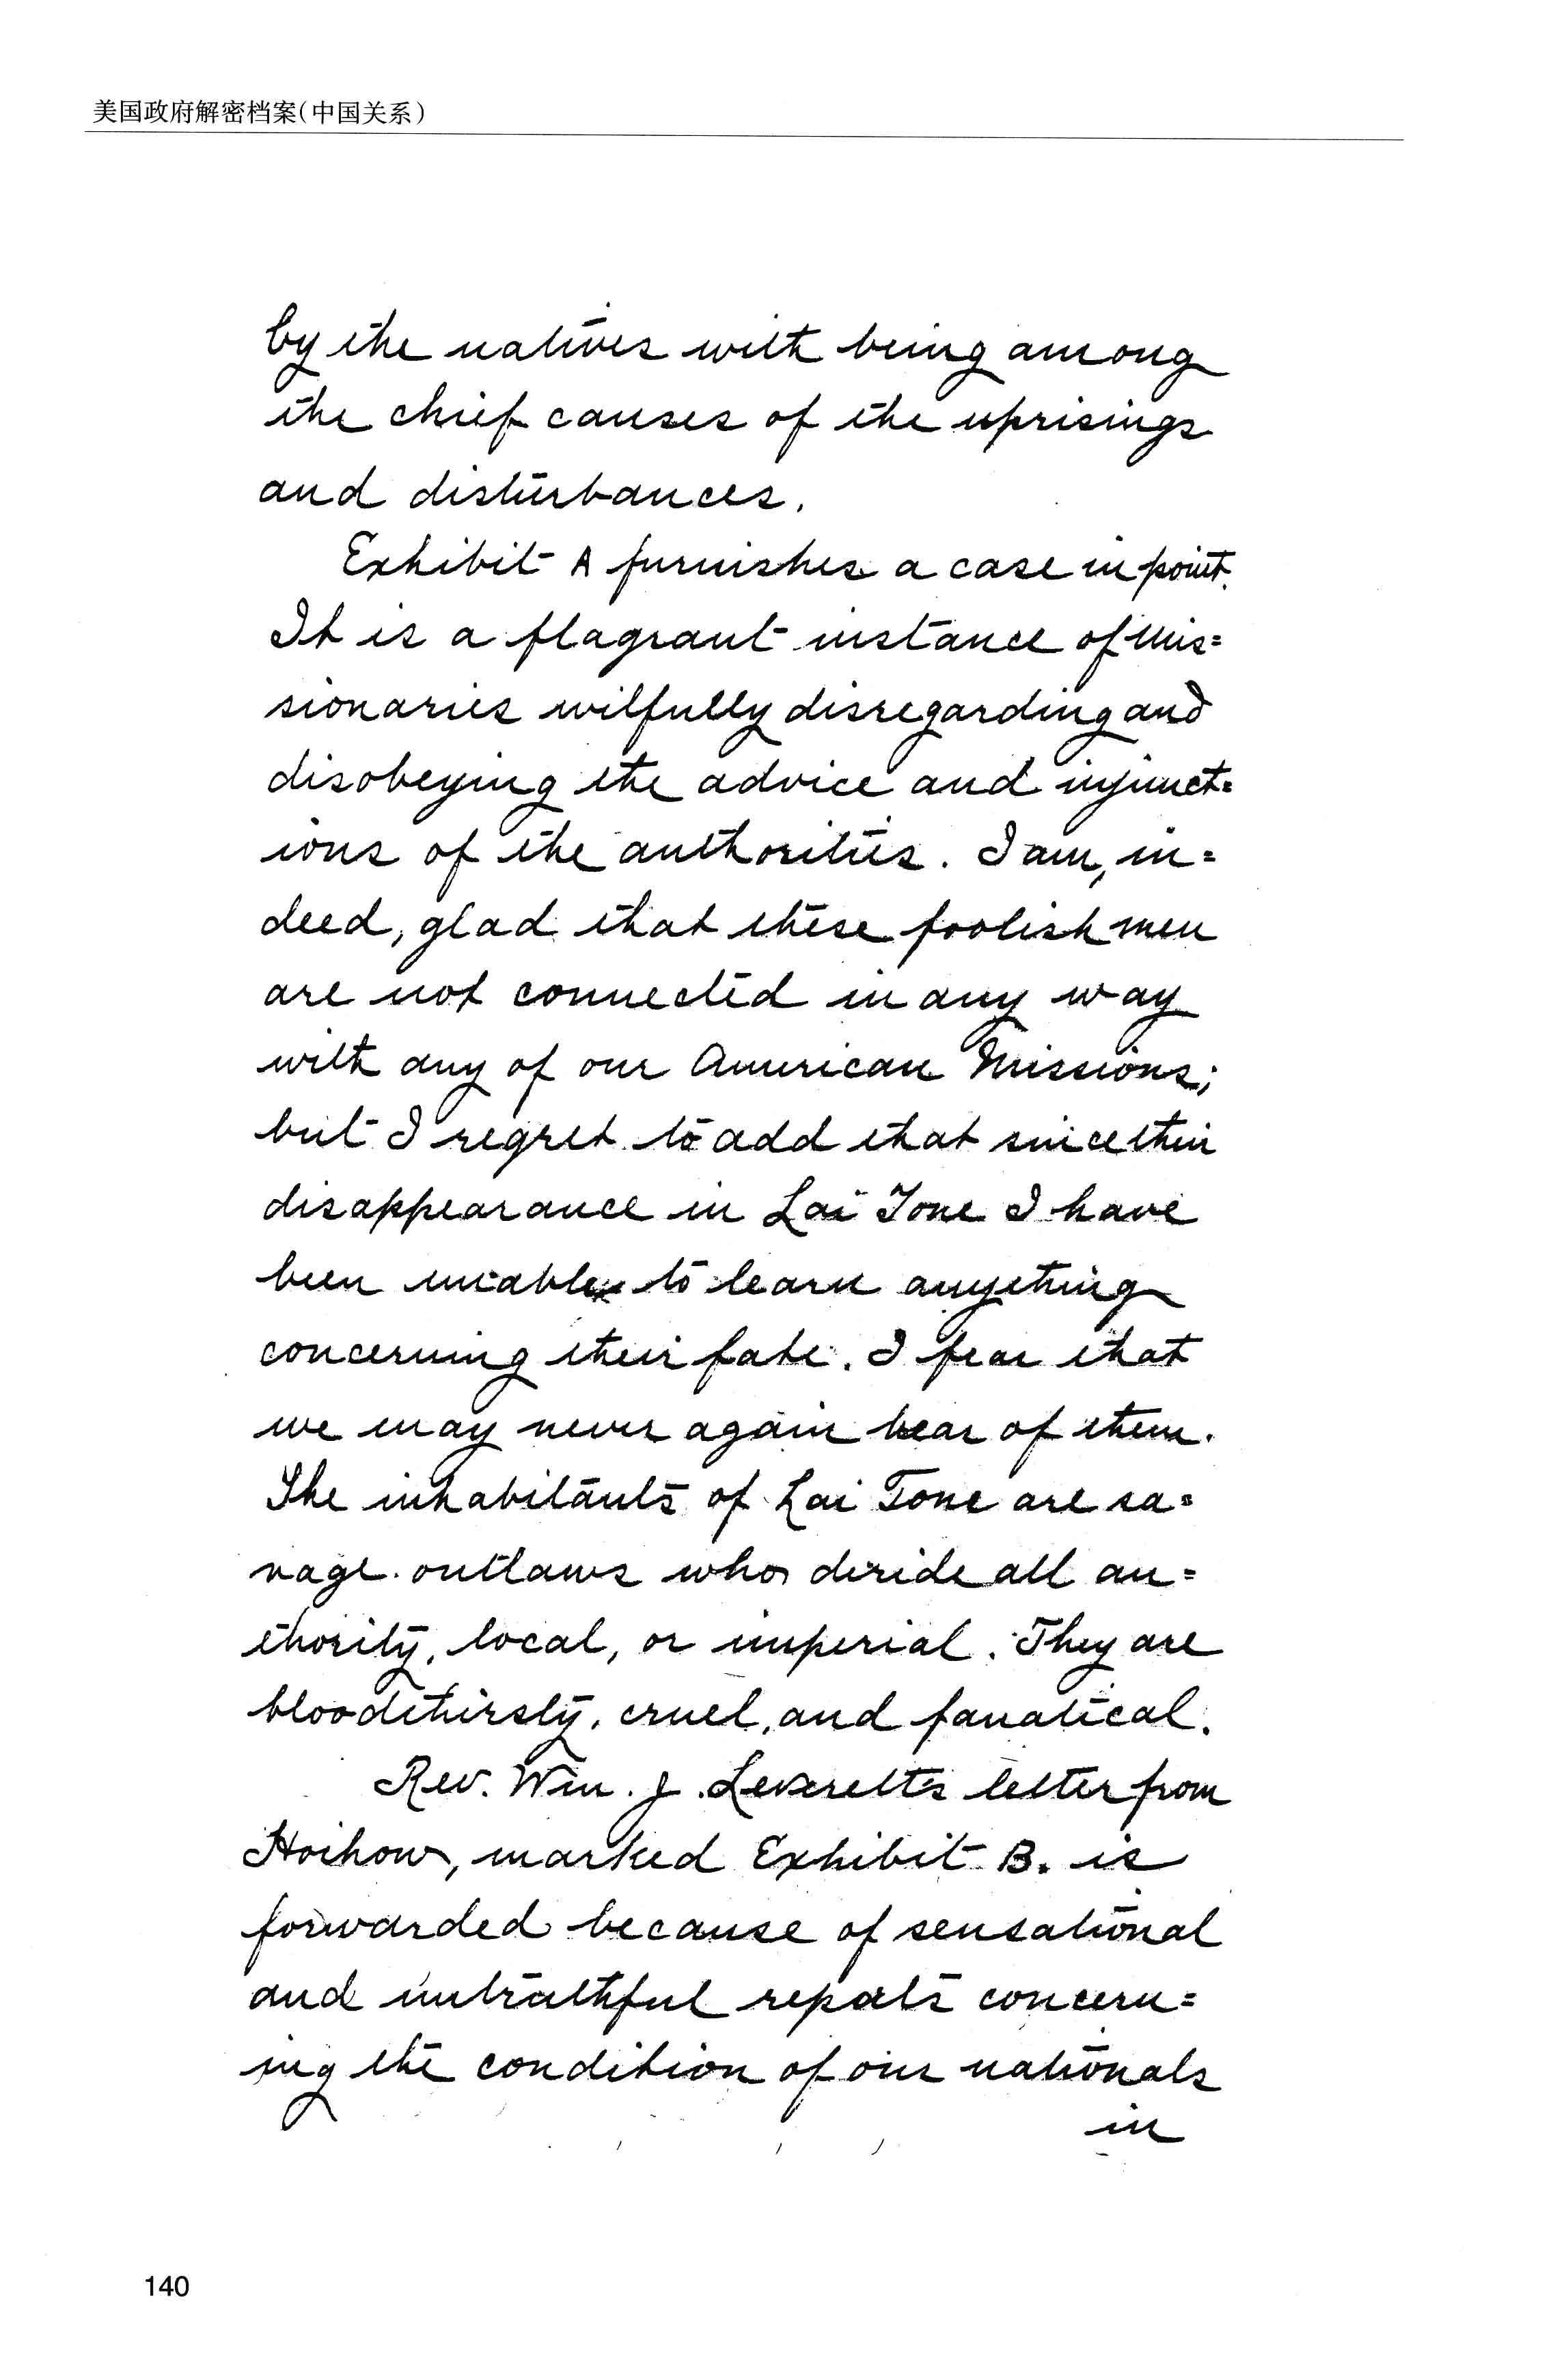 美国政府解密档案(中国关系)
by the natives with being among
the chief causes of the uprisings
and disturbances.
Exhibit A furnishes a case in point.
It is a flagrant instance of mis=
sionaries wilfully disregarding and
disobeying the advice and injunct=
ions of the authorities. I am, in=
deed, glad that these foolish men
are not connected in any way
with any of our American Missions;
but I regret to add that since their
disappearance in Lai Tone I have
been unable to learn anything
concerning their fate. I fear that
we may never again hear of them.
The inhabitants of Lai Tone are sa=
vage outlaws who deride all au=
thority, local, or imperial. They are
bloodthirsty, cruel, and fanatical.
Rev. Wm. J. Leverett's letter from
Hoihow, marked Exhibit B. is
forwarded because of sensational
and untruthful reports concern=
ing the condition of our nationals
in
140